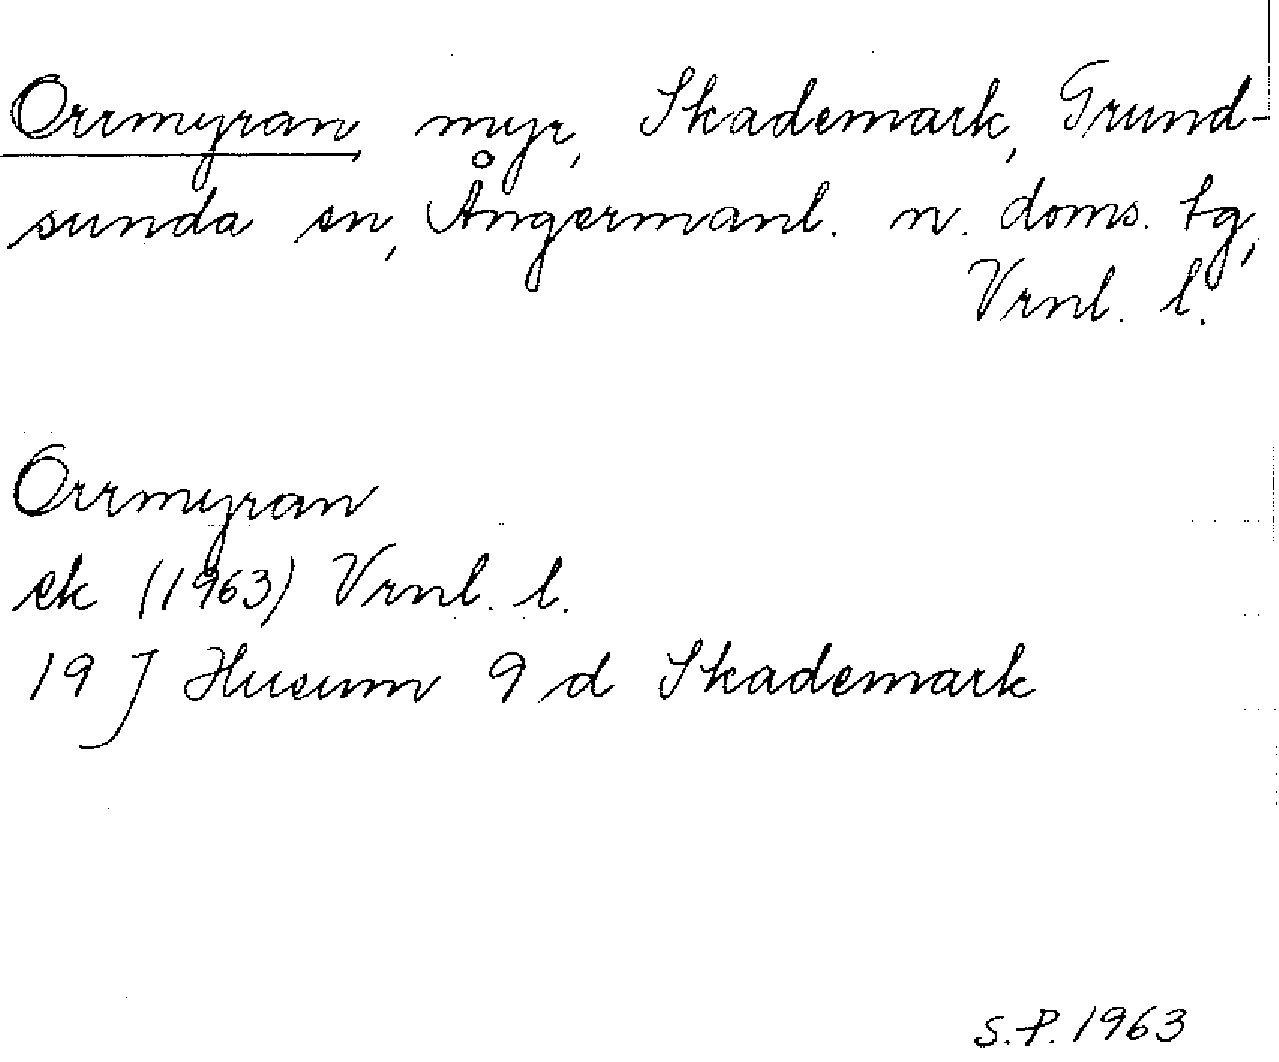 Orrmyran myr, Skademark, Grund-
sunda sn, Ångermanl. n. doms. tg,
Vrnl. l.
Orrmyran
ek (1963) Vrnl. l.
19 J Husum 9 d Skademark
S.P. 1963